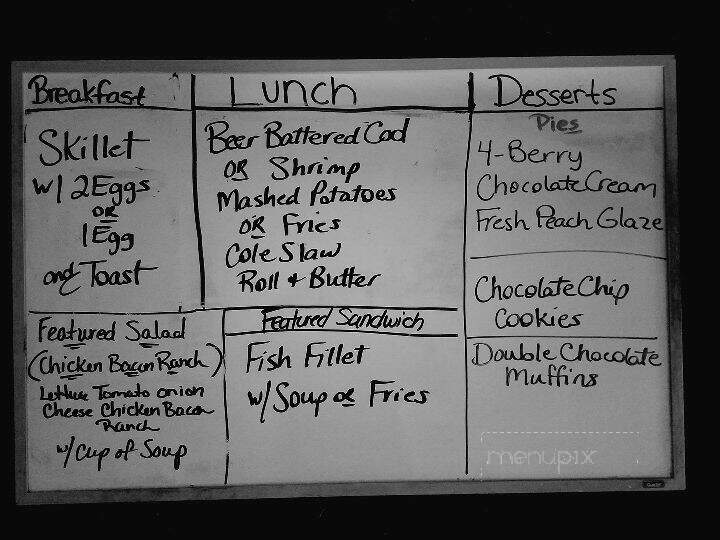 Breakfast
Skillet
w/ 2 Eggs
OR
1 Egg
and Toast
Lunch
Beer Battered Cod
OR Shrimp
Mashed Potatoes
OR Fries
Cole Slaw
Roll + Butter
Desserts
Pies
4-Berry
Chocolate Cream
Fresh Peach Glaze
Chocolate Chip
Cookies
Double Chocolate
Muffins
Featured Salad
(Chicken Bacon Ranch)
Lettuce Tomato onion
Cheese Chicken Bacon
Ranch
w/ Cup of Soup
Featured Sandwich
Fish Fillet
w/ Soup or Fries
menupix